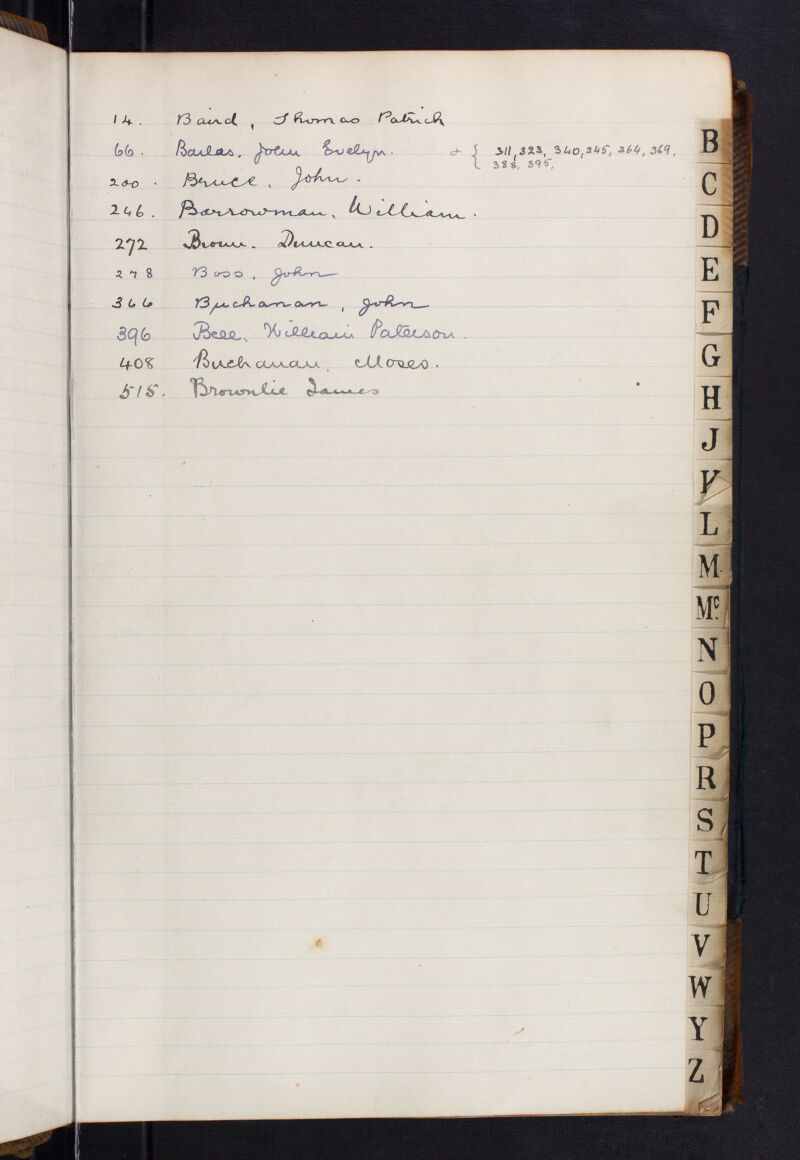 14. Baird, Thomas Patrick
66. Barlas, John Evelyn. & { 311, 323, 340, 345, 364, 369,
388, 395,
200. Bruce, John.
246. Barrowman, William.
272 Brown. Duncan.
278 Boss, John
366 Buchanan, John
396 Bell, William Paterson.
408 Buchanan, Moses.
515. Brownlie James
B
C
D
E
F
G
H
J
K
L
M
Mc
N
O
P
R
S
T
U
V
W
Y
Z